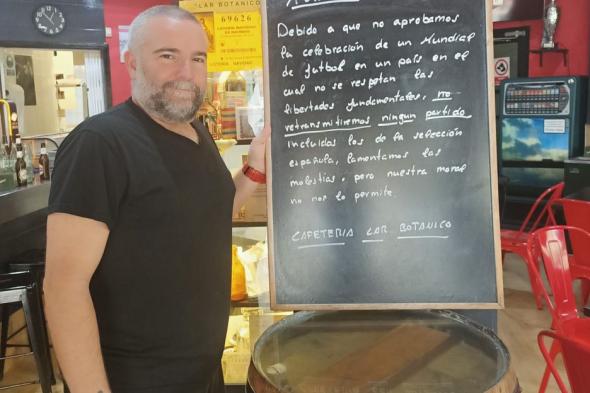 "LAR BOTANICO"
69626
Debido a que no aprobamos
la celebración de un Mundial
de futbol en un país en el
cual no se respetan las
libertades fundamentales, no
retransmitiremos ningun partido
incluidos los de la selección
española, lamentamos las
molestias, pero nuestra moral
no nos lo permite.
CAFETERIA LAR BOTANICO